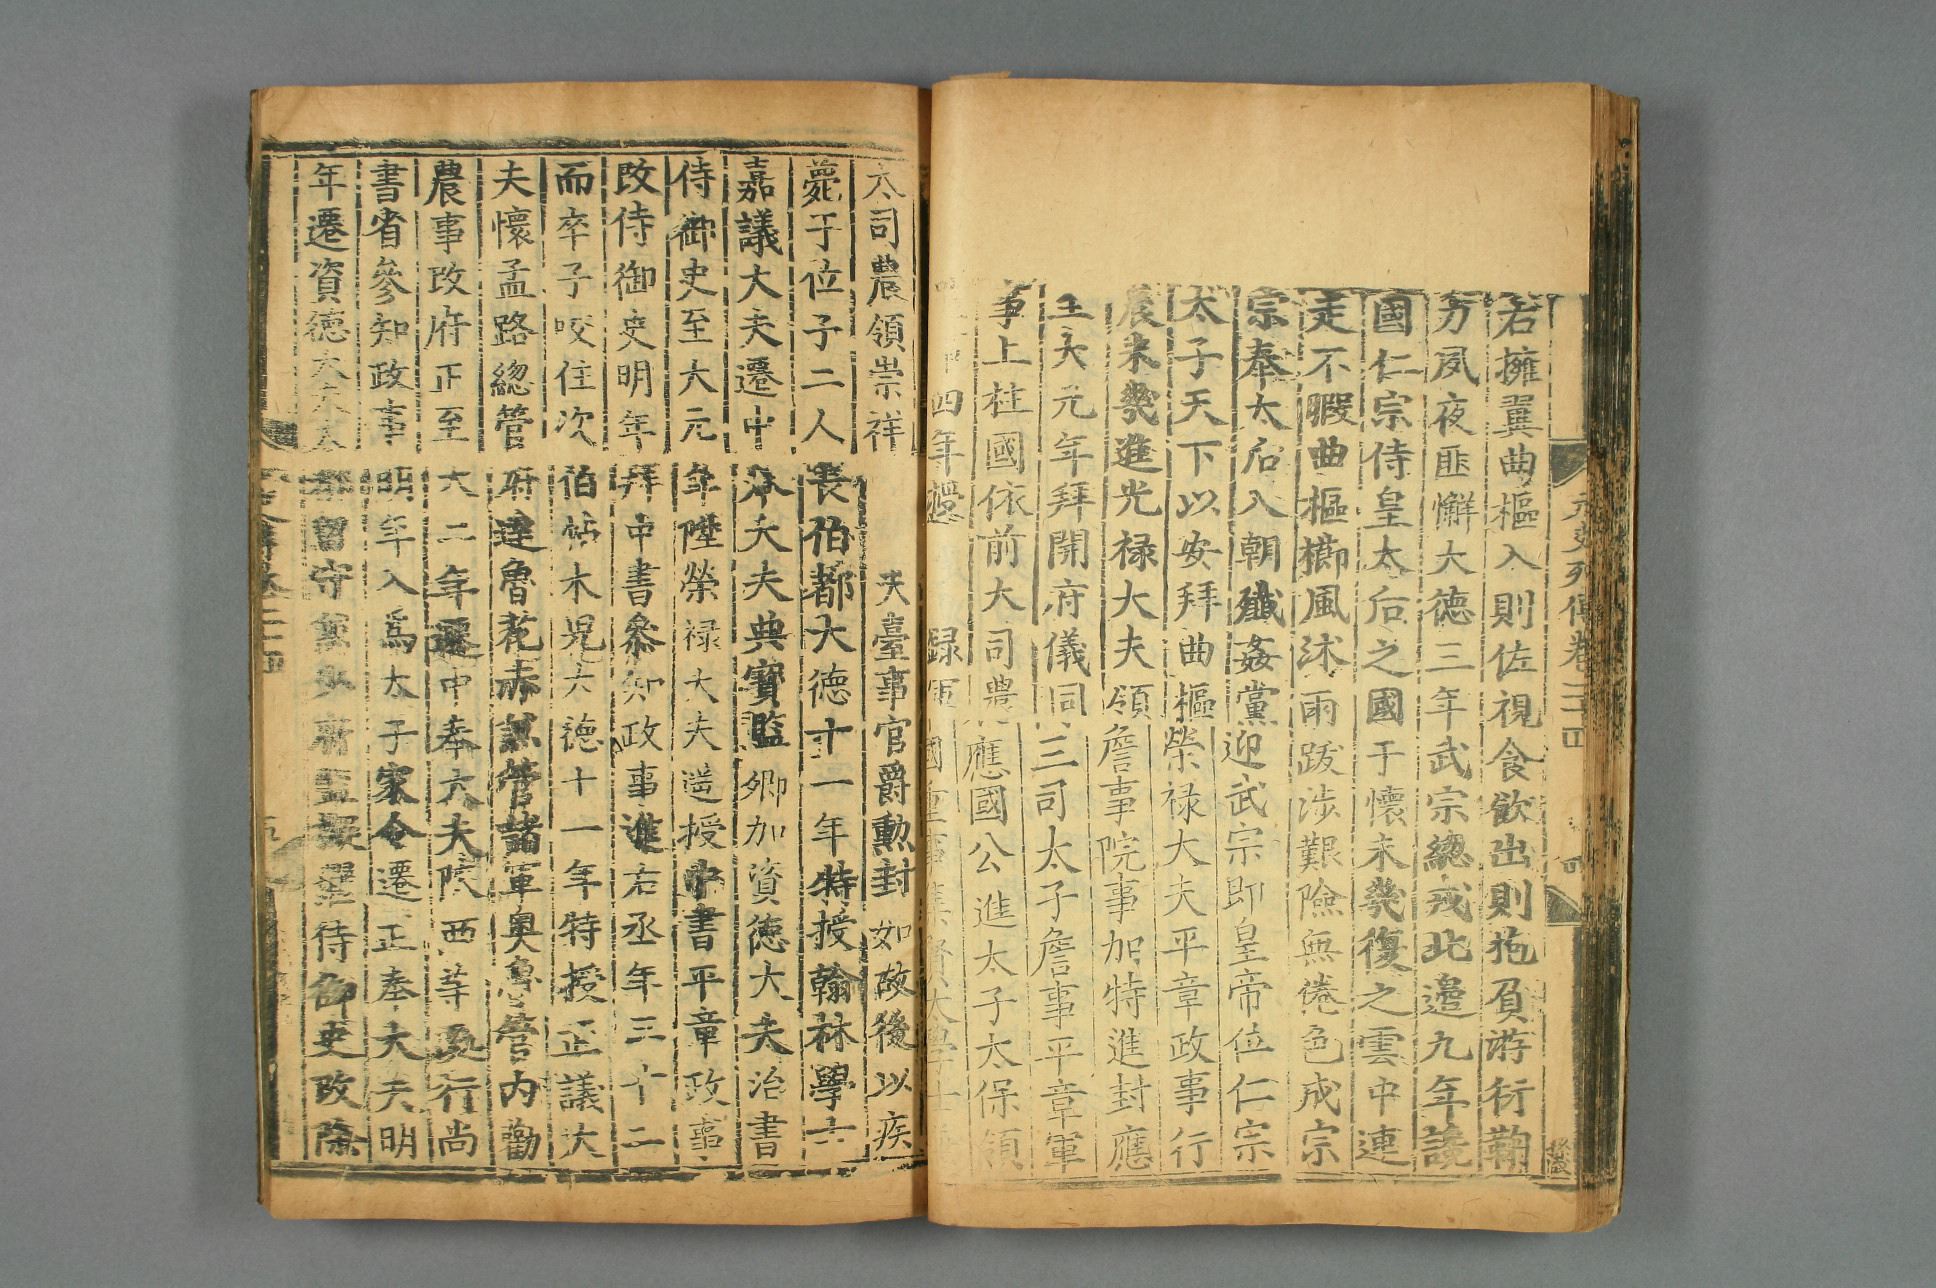 元史列傳卷二十四
四
若擁翼曲樞入則佐視食飲出則抱負游衍鞠
力夙夜匪懈大德三年武宗總戎北邊九年讒
國仁宗侍皇太后之國于懷未幾復之雲中連
走不暇曲樞櫛風沐雨跋涉艱險無倦色成宗
宗奉太后入朝殲姦黨迎武宗即皇帝位仁宗
太子天下以安拜曲樞榮禄大夫平章政事行
農未幾進光禄大夫領詹事院事加特進封應
至大元年拜開府儀同三司太子詹事平章軍
事上柱國依前大司農應國公進太子太保領
四年 録軍國重事集賢大學士
太司農領崇祥 夫臺事官爵勳封如故後以疾
薨于位子二人長伯都大德十一年特授翰林學士
嘉議大夫遷中 大夫典寶監卿加資德大夫治書
侍御史至大元年陞榮禄大夫遥授中書平章政事
改侍御史明年拜中書參知政事進右丞年三十二
而卒子咬住次伯帖木兒大德十一年特授正議大
夫懷孟路總管府達魯花赤兼管諸軍奥魯管内勸
農事改府正至大二年遷中奉大夫陝西等處行尚
書省參知政事明年入爲太子家令遷正奉大夫明
年遷資德大夫大都留守兼少府監 侍御史改除
卷二十四
五